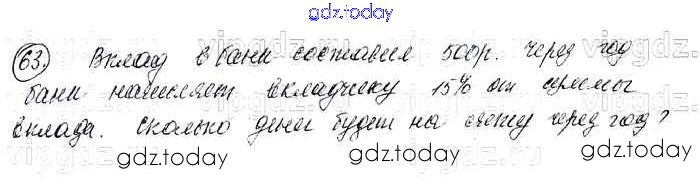 gdz.today
63. Вклад в банк составил 500р. Через год
банк начисляет вкладчику 15% от суммы
вклада. Сколько денег будет на счету через год?
gdz.today gdz.today gdz.today